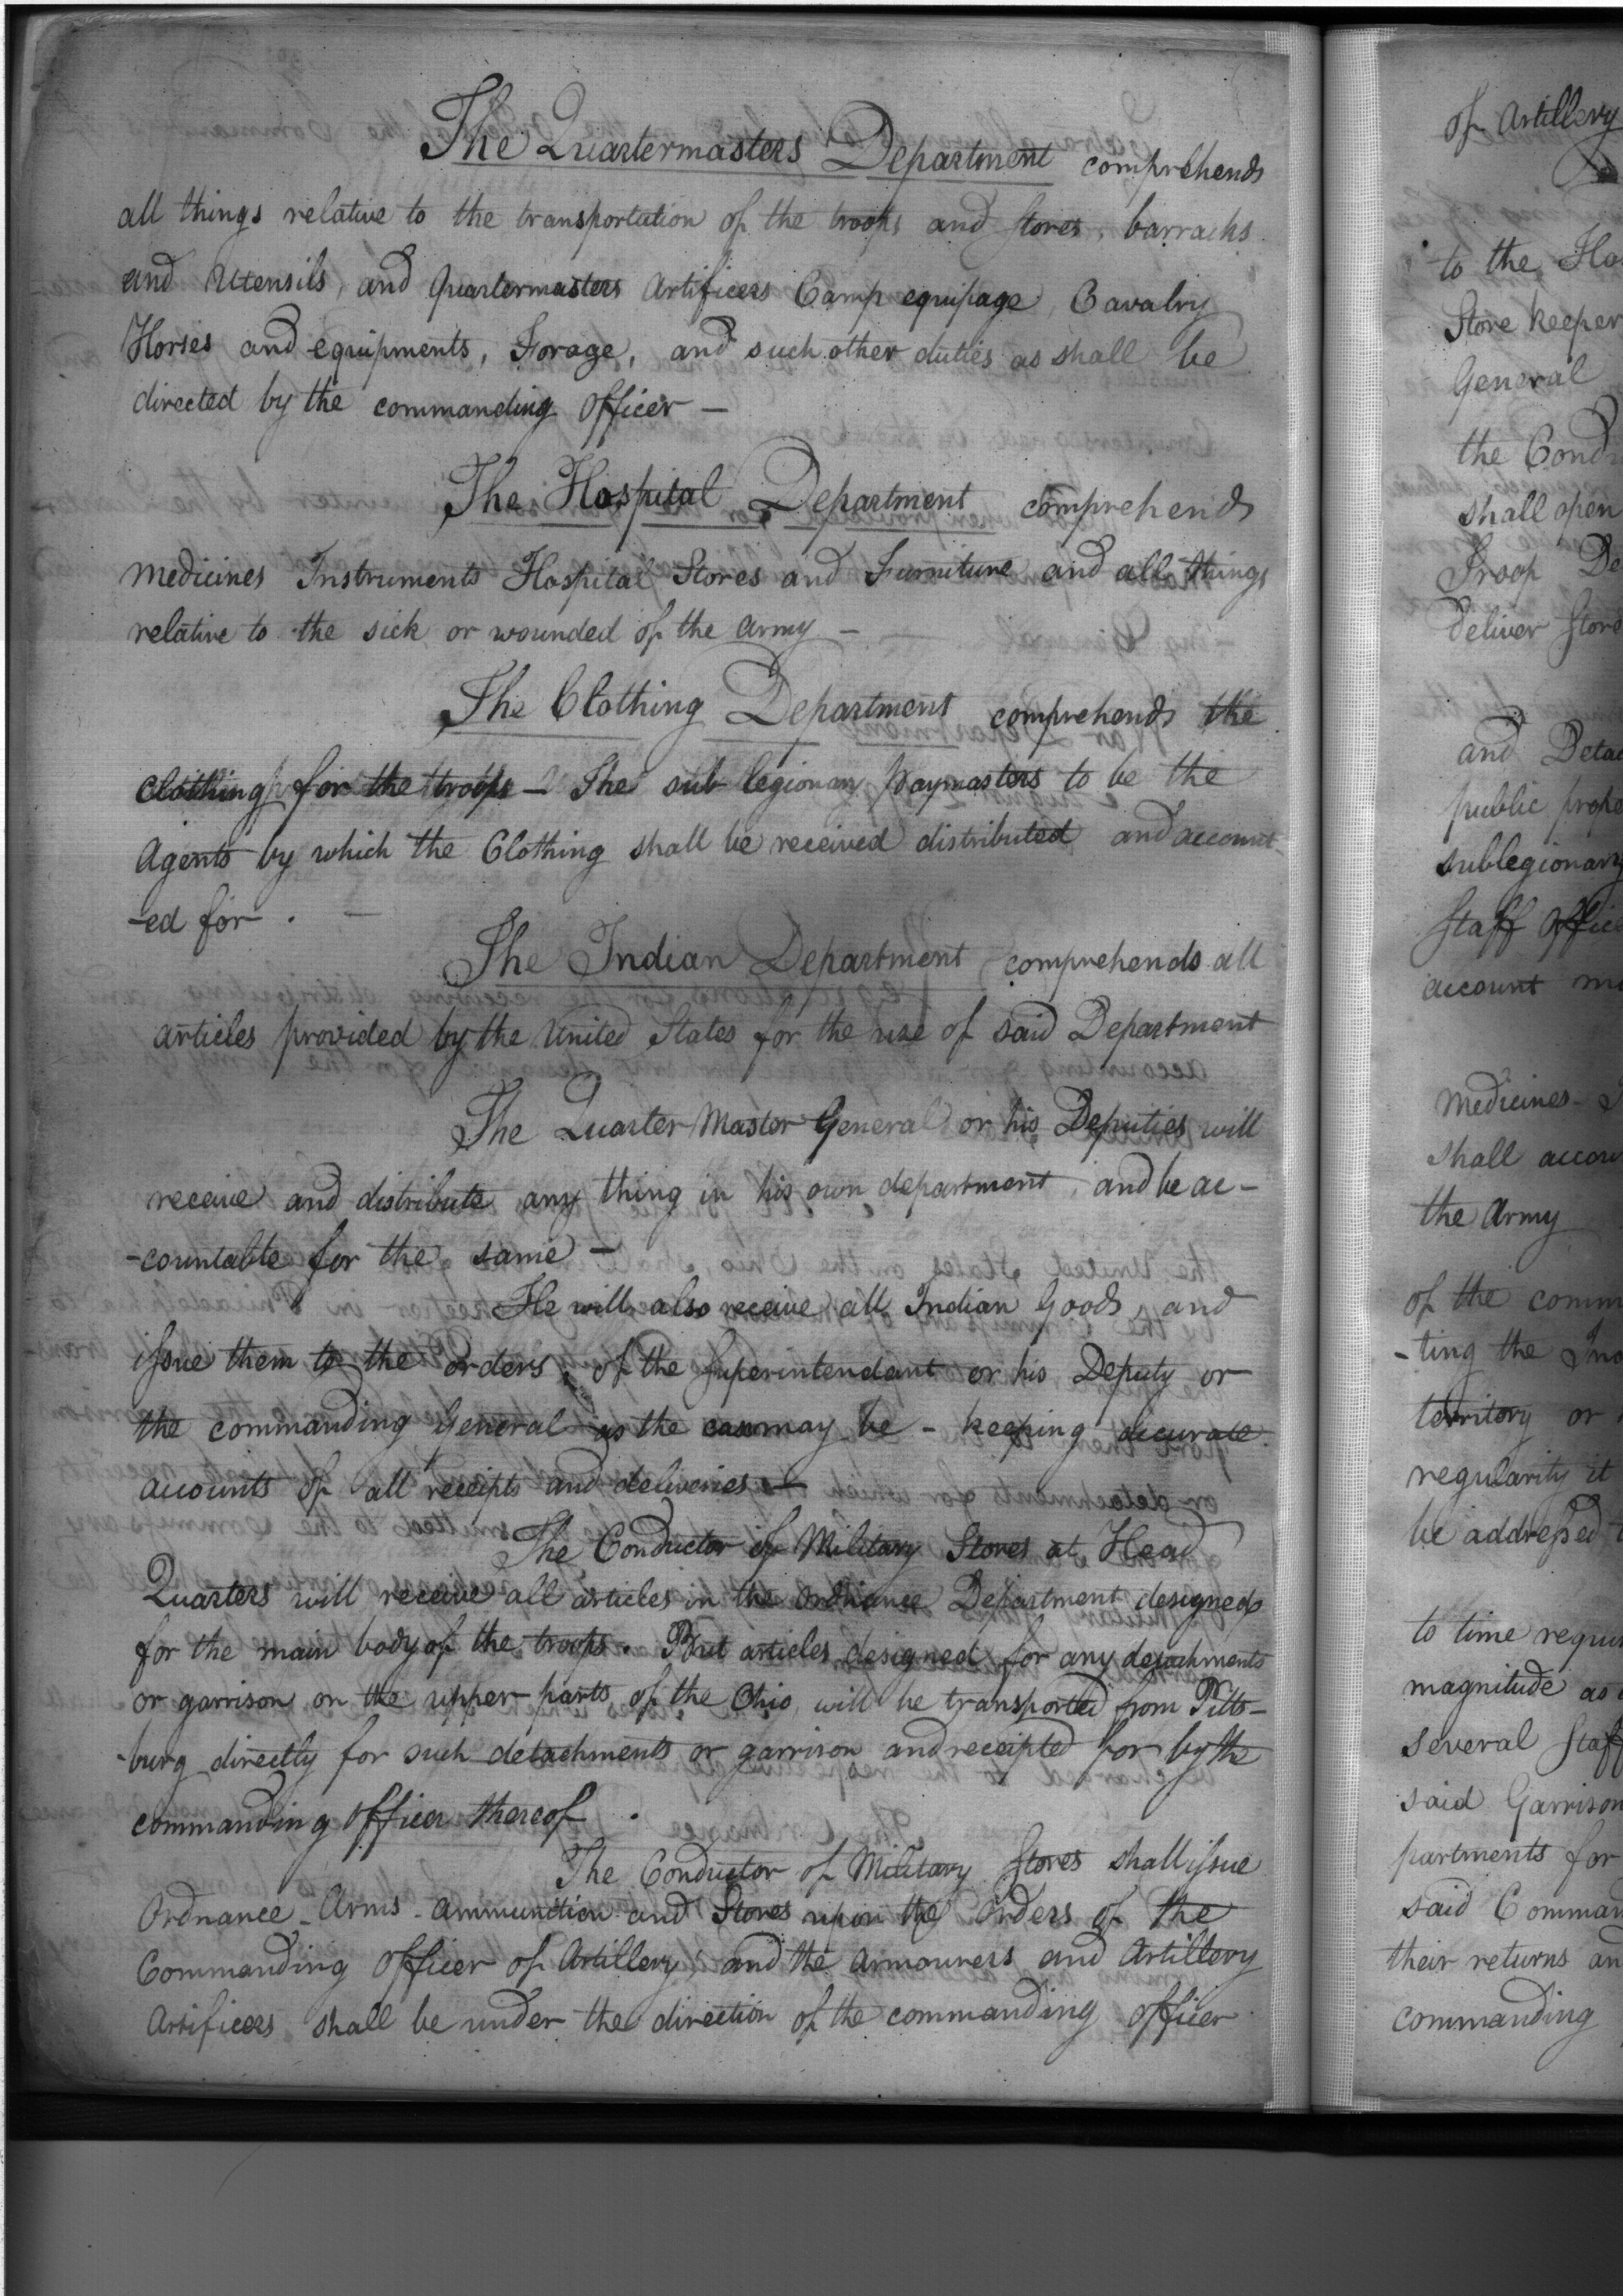 The Quartermasters Department comprehends
all things relative to the transportation of the troops and stores, barracks
and Utensils, and Quartermasters Artificers Camp equipage, Cavalry
Horses and equipments, Forage, and such other duties as shall be
directed by the commanding officer —
The Hospital Department comprehends
medicines Instruments Hospital Stores and Furniture and all things
relative to the sick or wounded of the army —
The Clothing Department comprehends the
Clothing for the troops — The sub legionary paymasters to be the
Agents by which the Clothing shall be received distributed and account
-ed for . —
The Indian Department comprehends all
articles provided by the United States for the use of said Department
The Quarter Master General or his Deputies will
receive and distribute any thing in his own department, and be ac-
-countable for the same —
He will also receive all Indian Goods, and
issue them to the orders, of the Superintendant or his Deputy or
the commanding General as the case may be - keeping accurate
accounts of all receipts and deliveries —
The Conductor of Military Stores at Head
Quarters will receive all articles in the Ordnance Department designed
for the main body of the troops. But articles designed for any detachments
or garrison on the upper parts of the Ohio, will be transported from Pitts-
-burg directly for such detachments or garrison and receipted for by the
commanding officer thereof .
The Conductor of Military Stores shall issue
Ordnance - Arms - Ammunition and Stores upon the Orders of the
Commanding Officer of Artillery; and the Armourers and Artillery
Artificers shall be under the direction of the commanding officer
of Artillery
to the
Store keeper
General
the
shall open
Troop
deliver
and
public
sublegionary
Staff
account
Medicines -
shall
the Army
of the
-ting the
territory or
regularity it
be addressed
to time
magnitude as
several
said Garrison
partments for
said
their returns
commanding